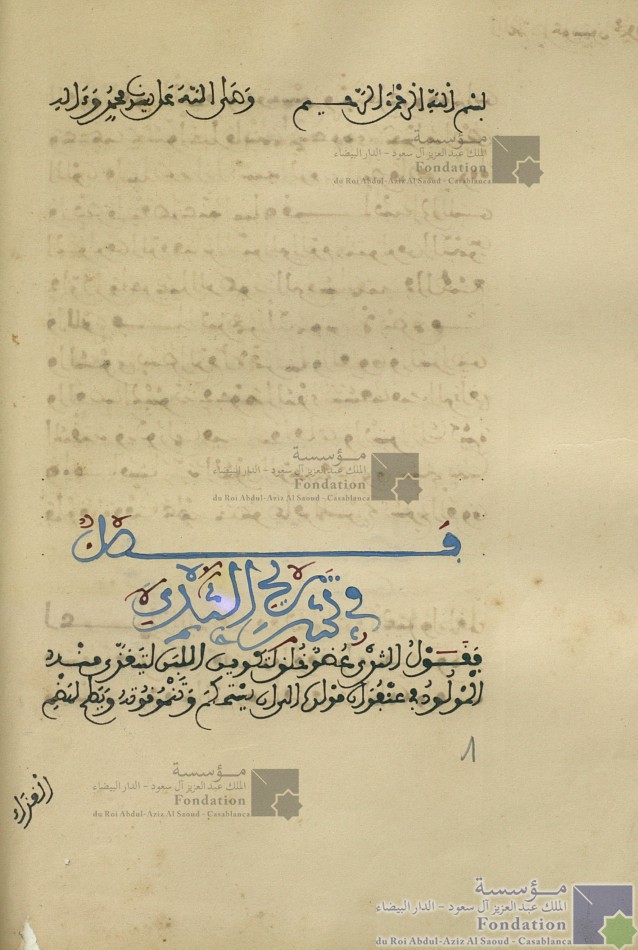 بسم الله الرحمن الرحيم وصلى الله على سيدنا محمد وءاله
مؤسسة
الملك عبد العزيز آل سعود - الدار البيضاء
Fondation
du Roi Abdul-Aziz Al Saoud - Casablanca
مؤسسة
الملك عبد العزيز آل سعود - الدار البيضاء
Fondation
du Roi Abdul-Aziz Al Saoud - Casablanca
فصل
في تشريح الثدي
فنقول الثدي عضو خلق لتكوين اللبن ليتغذى منه
المولود في عنفوان مولده الى ان يستحكم وتنمو قوته لهضم
٨
الغذاء
مؤسسة
الملك عبد العزيز آل سعود - الدار البيضاء
Fondation
du Roi Abdul-Aziz Al Saoud - Casablanca
مؤسسة
الملك عبد العزيز آل سعود - الدار البيضاء
Fondation
du Roi Abdul-Aziz Al Saoud - Casablanca